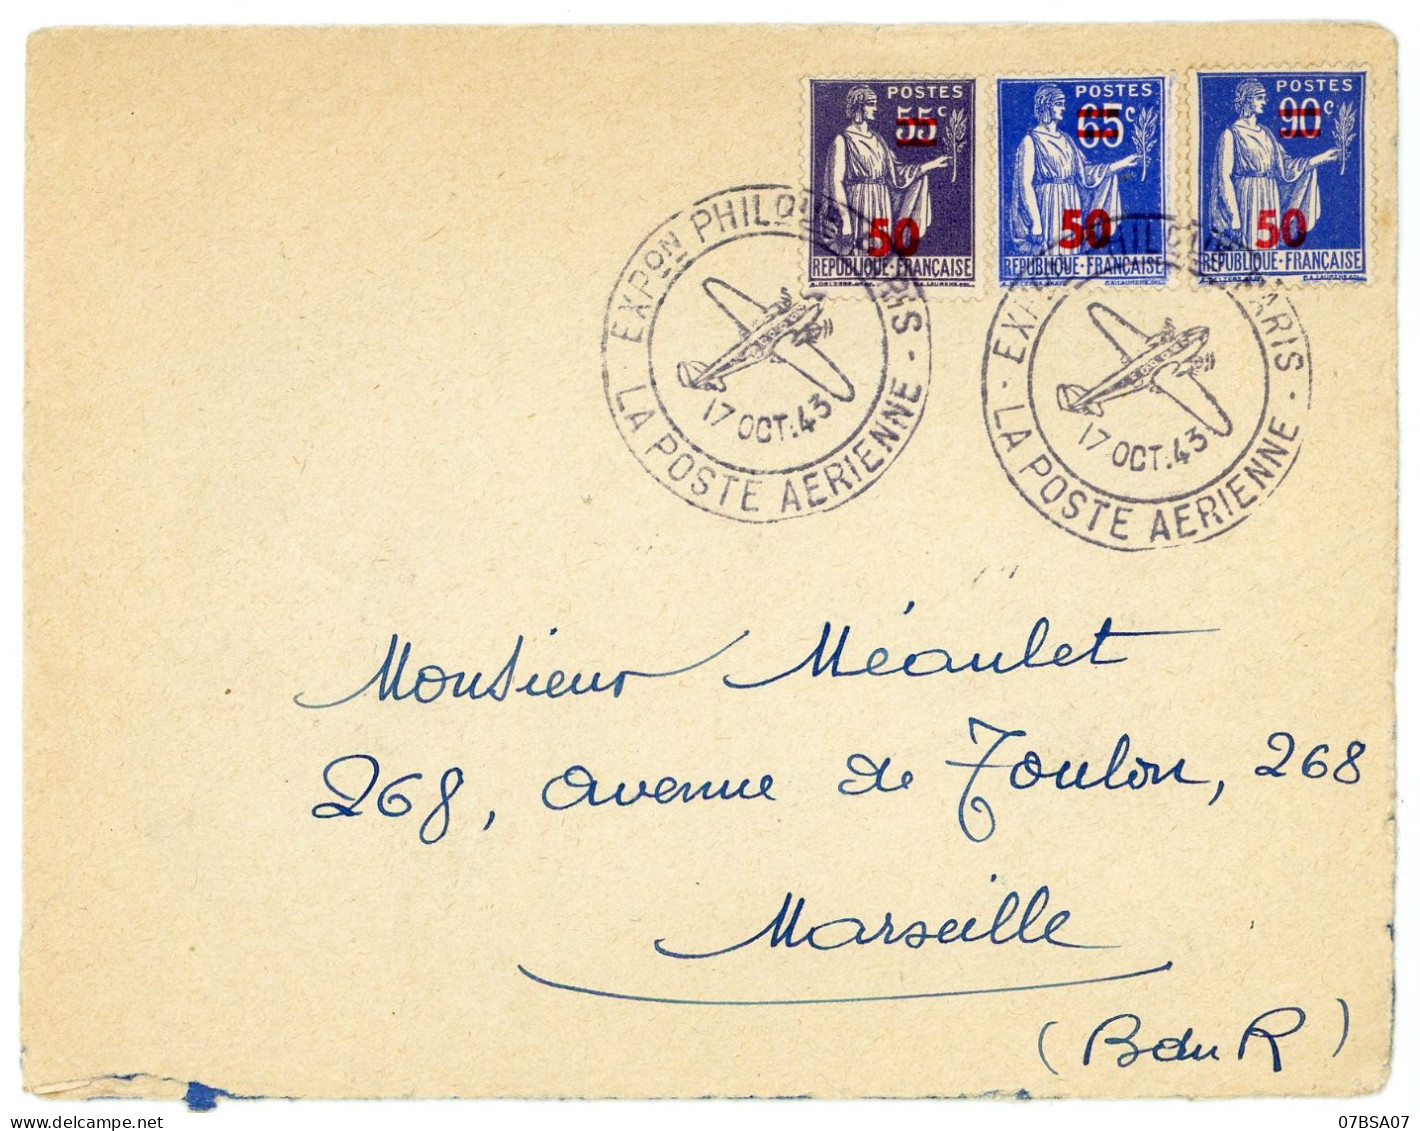 POSTES
55c
50
RÉPUBLIQUE-FRANÇAISE
POSTES
65c
50
RÉPUBLIQUE-FRANÇAISE
POSTES
90c
50
RÉPUBLIQUE-FRANÇAISE
EXPON PHILQUE PARIS
17 OCT. 43
LA POSTE AERIENNE
EXPON PHILQUE PARIS
17 OCT. 43
LA POSTE AERIENNE
Monsieur Méaulet
268, avenue de Toulon, 268
Marseille
(B du R)
delcampe.net
07BSA07